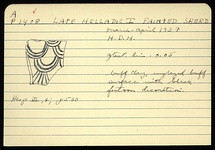 A
P 1408 LATE HELLADIC I PAINTED SHERD
March-April 1937
H.D.H.
grtst. dim. 0.05
buff clay, unglazed buff
surface with
festoon decoration.
Deep.